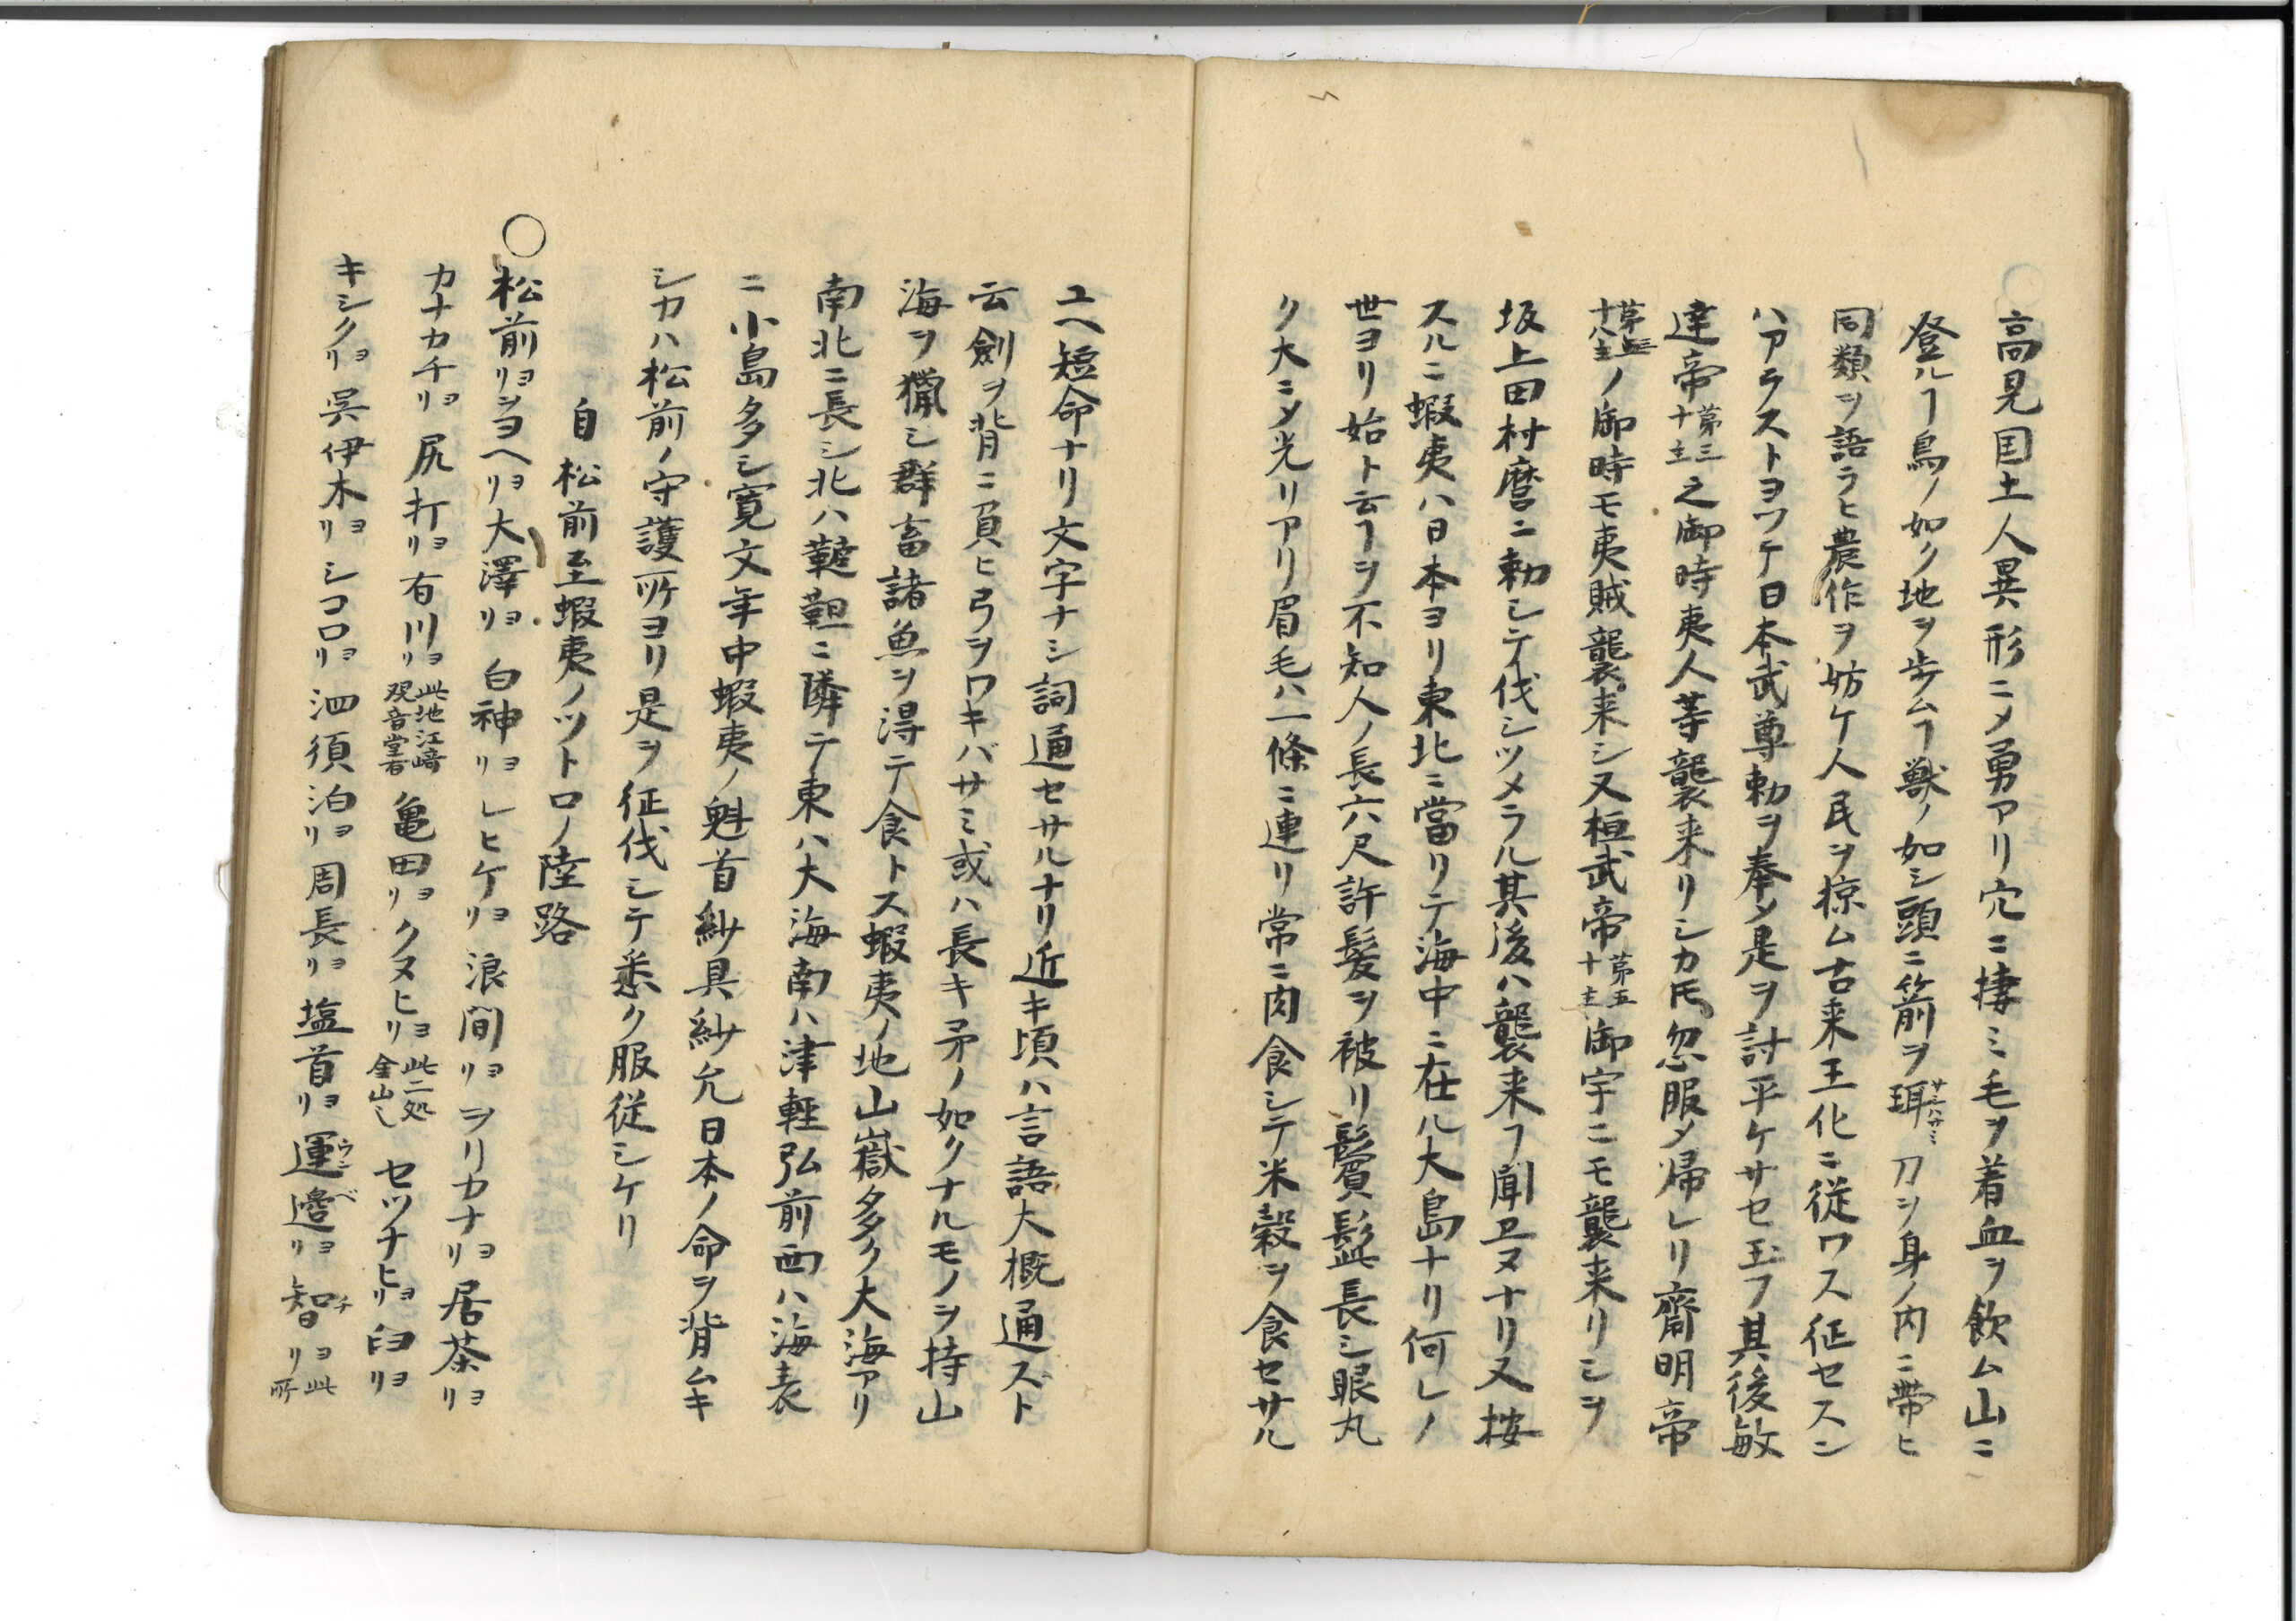 高見国土人異形ニメ勇アリ穴ニ捿ミ毛ヲ着血ヲ飲ム山ニ
登ルヿ鳥ノ如ク地ヲ歩ムヿ獣ノ如シ頭ニ箭ヲ珥刀ヲ身ノ内ニ帯ヒ
同類ヲ語ラヒ農作ヲ妨ケ人民ヲ掠ム古来王化ニ従ワス征セスン
ハアラストヨツケ日本武尊勅ヲ奉メ是ヲ討平ケサセ玉フ其後敏
達帝第三十主之御時夷人等襲来リシカ𪜈忽服メ帰レリ齋明帝
第卅十八主ノ御時モ夷賊襲来シ又桓武帝第五十主御宇ニモ襲来リシヲ
坂上田村麿ニ勅シテ伐シツメラル其後ハ襲来フ聞エヌナリ又按
スルニ蝦夷ハ日本ヨリ東北ニ當リテ海中ニ在ル大島ナリ何レノ
世ヨリ始ト云ヿヲ不知人ノ長六尺許髪ヲ被リ鬢髭長シ眼丸
ク大ニメ光リアリ眉毛ハ一條ニ連リ常ニ肉食シテ米穀ヲ食セサル
ユヘ短命ナリ文字ナシ詞通セサルナリ近キ頃ハ言語大概通ズト
云劍ヲ背ニ負ヒ弓ヲワキバサミ或ハ長キ矛ノ如クナルモノヲ持山
海ヲ猟シ群畜諸魚ヲ得テ食トス蝦夷ノ地山嶽多ク大海アリ
南北ニ長シ北ハ韃靼ニ隣テ東ハ大海南ハ津軽弘前西ハ海表
ニ小島多シ寛文年中蝦夷ノ魁首紗具紗允日本ノ命ヲ背ムキ
シカハ松前ノ守護所ヨリ是ヲ征伐シテ悉ク服従シケリ
自松前至蝦夷ノツトロノ陸路
○松前ヨリヲヨヘヨリ大澤ヨリ白神ヨリレヒケヨリ浪間ヨリヲリカナヨリ居茶ヨリ
カナカチヨリ尻打ヨリ右川ヨリ此地江﨑観音堂有亀田ヨリクヌヒヨリ此二処金山シセツナヒヨリ臼ヨリ
キシクヨリ呉伊木ヨリシコロヨリ泗須泊ヨリ周長ヨリ塩首ヨリ運邉ヨリ智ヨリ此所